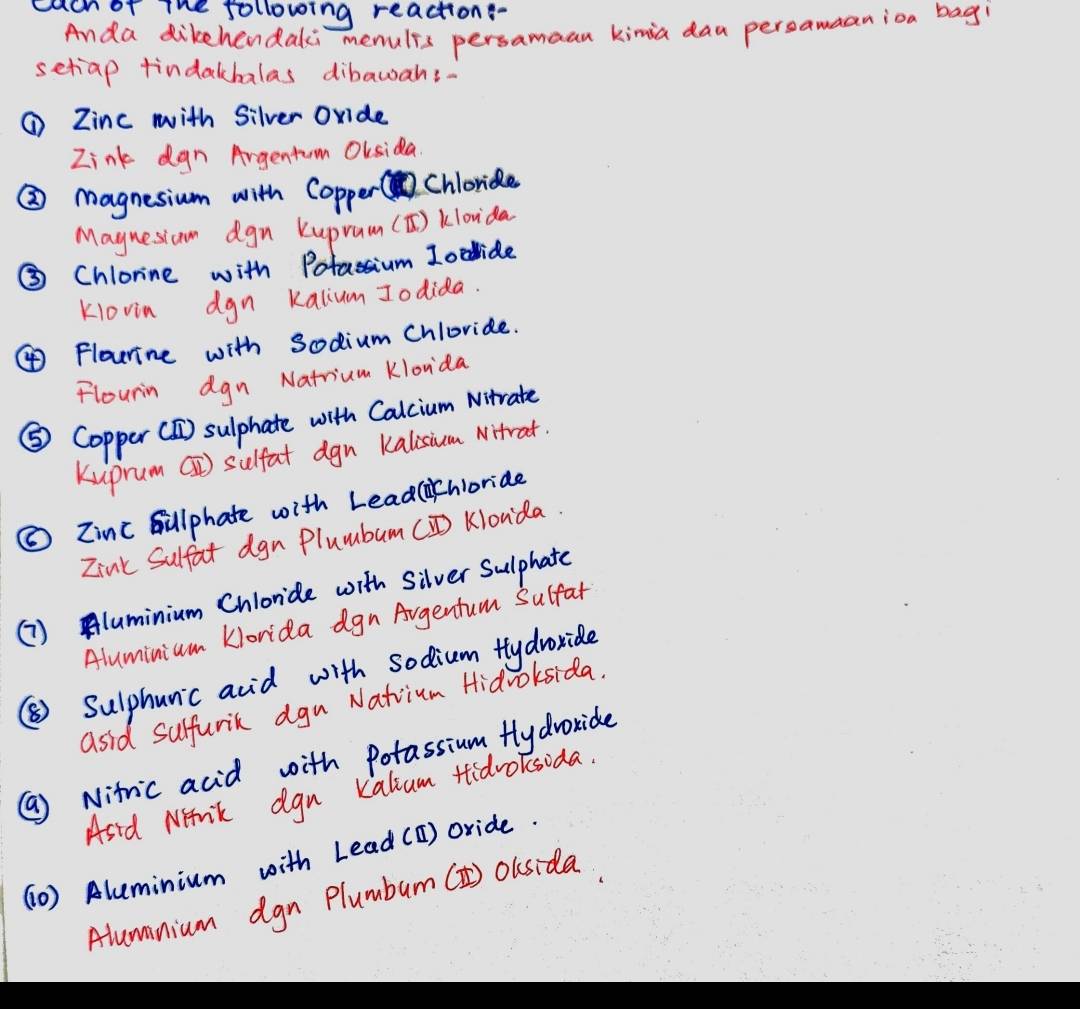 each of the following reaction:-
Anda dikehendaki menulis persamaan kimia dan persamaan ion bagi
setiap tindakbalas dibawah:-
① Zinc with Silver Oxide
Zink dgn Argentum Oksida.
② Magnesium with Copper(II) Chloride
Magnesium dgn Kuprum (II) klorida
③ Chlorine with Potassium Iodide
Klorin dgn Kalium Iodida.
④ Flourine with Sodium Chloride.
Flourin dgn Natrium Klorida
⑤ Copper (II) sulphate with Calcium Nitrate
Kuprum (II) sulfat dgn Kalisium Nitrat.
⑥ Zinc Sulphate with Lead(II)Chloride
Zink Sulfat dgn Plumbum (II) Klorida.
(7) Aluminium Chloride with Silver Sulphate
Aluminium Klorida dgn Argentum Sulfat
⑧ Sulphuric acid with Sodium Hydroxide
asid Sulfurik dgn Natrium Hidroksida.
⑨ Nitric acid with Potassium Hydroxide
Asid Nitrik dgn Kalium Hidroksida.
(10) Aluminium with Lead (II) oxide.
Aluminium dgn Plumbum (II) Oksida.